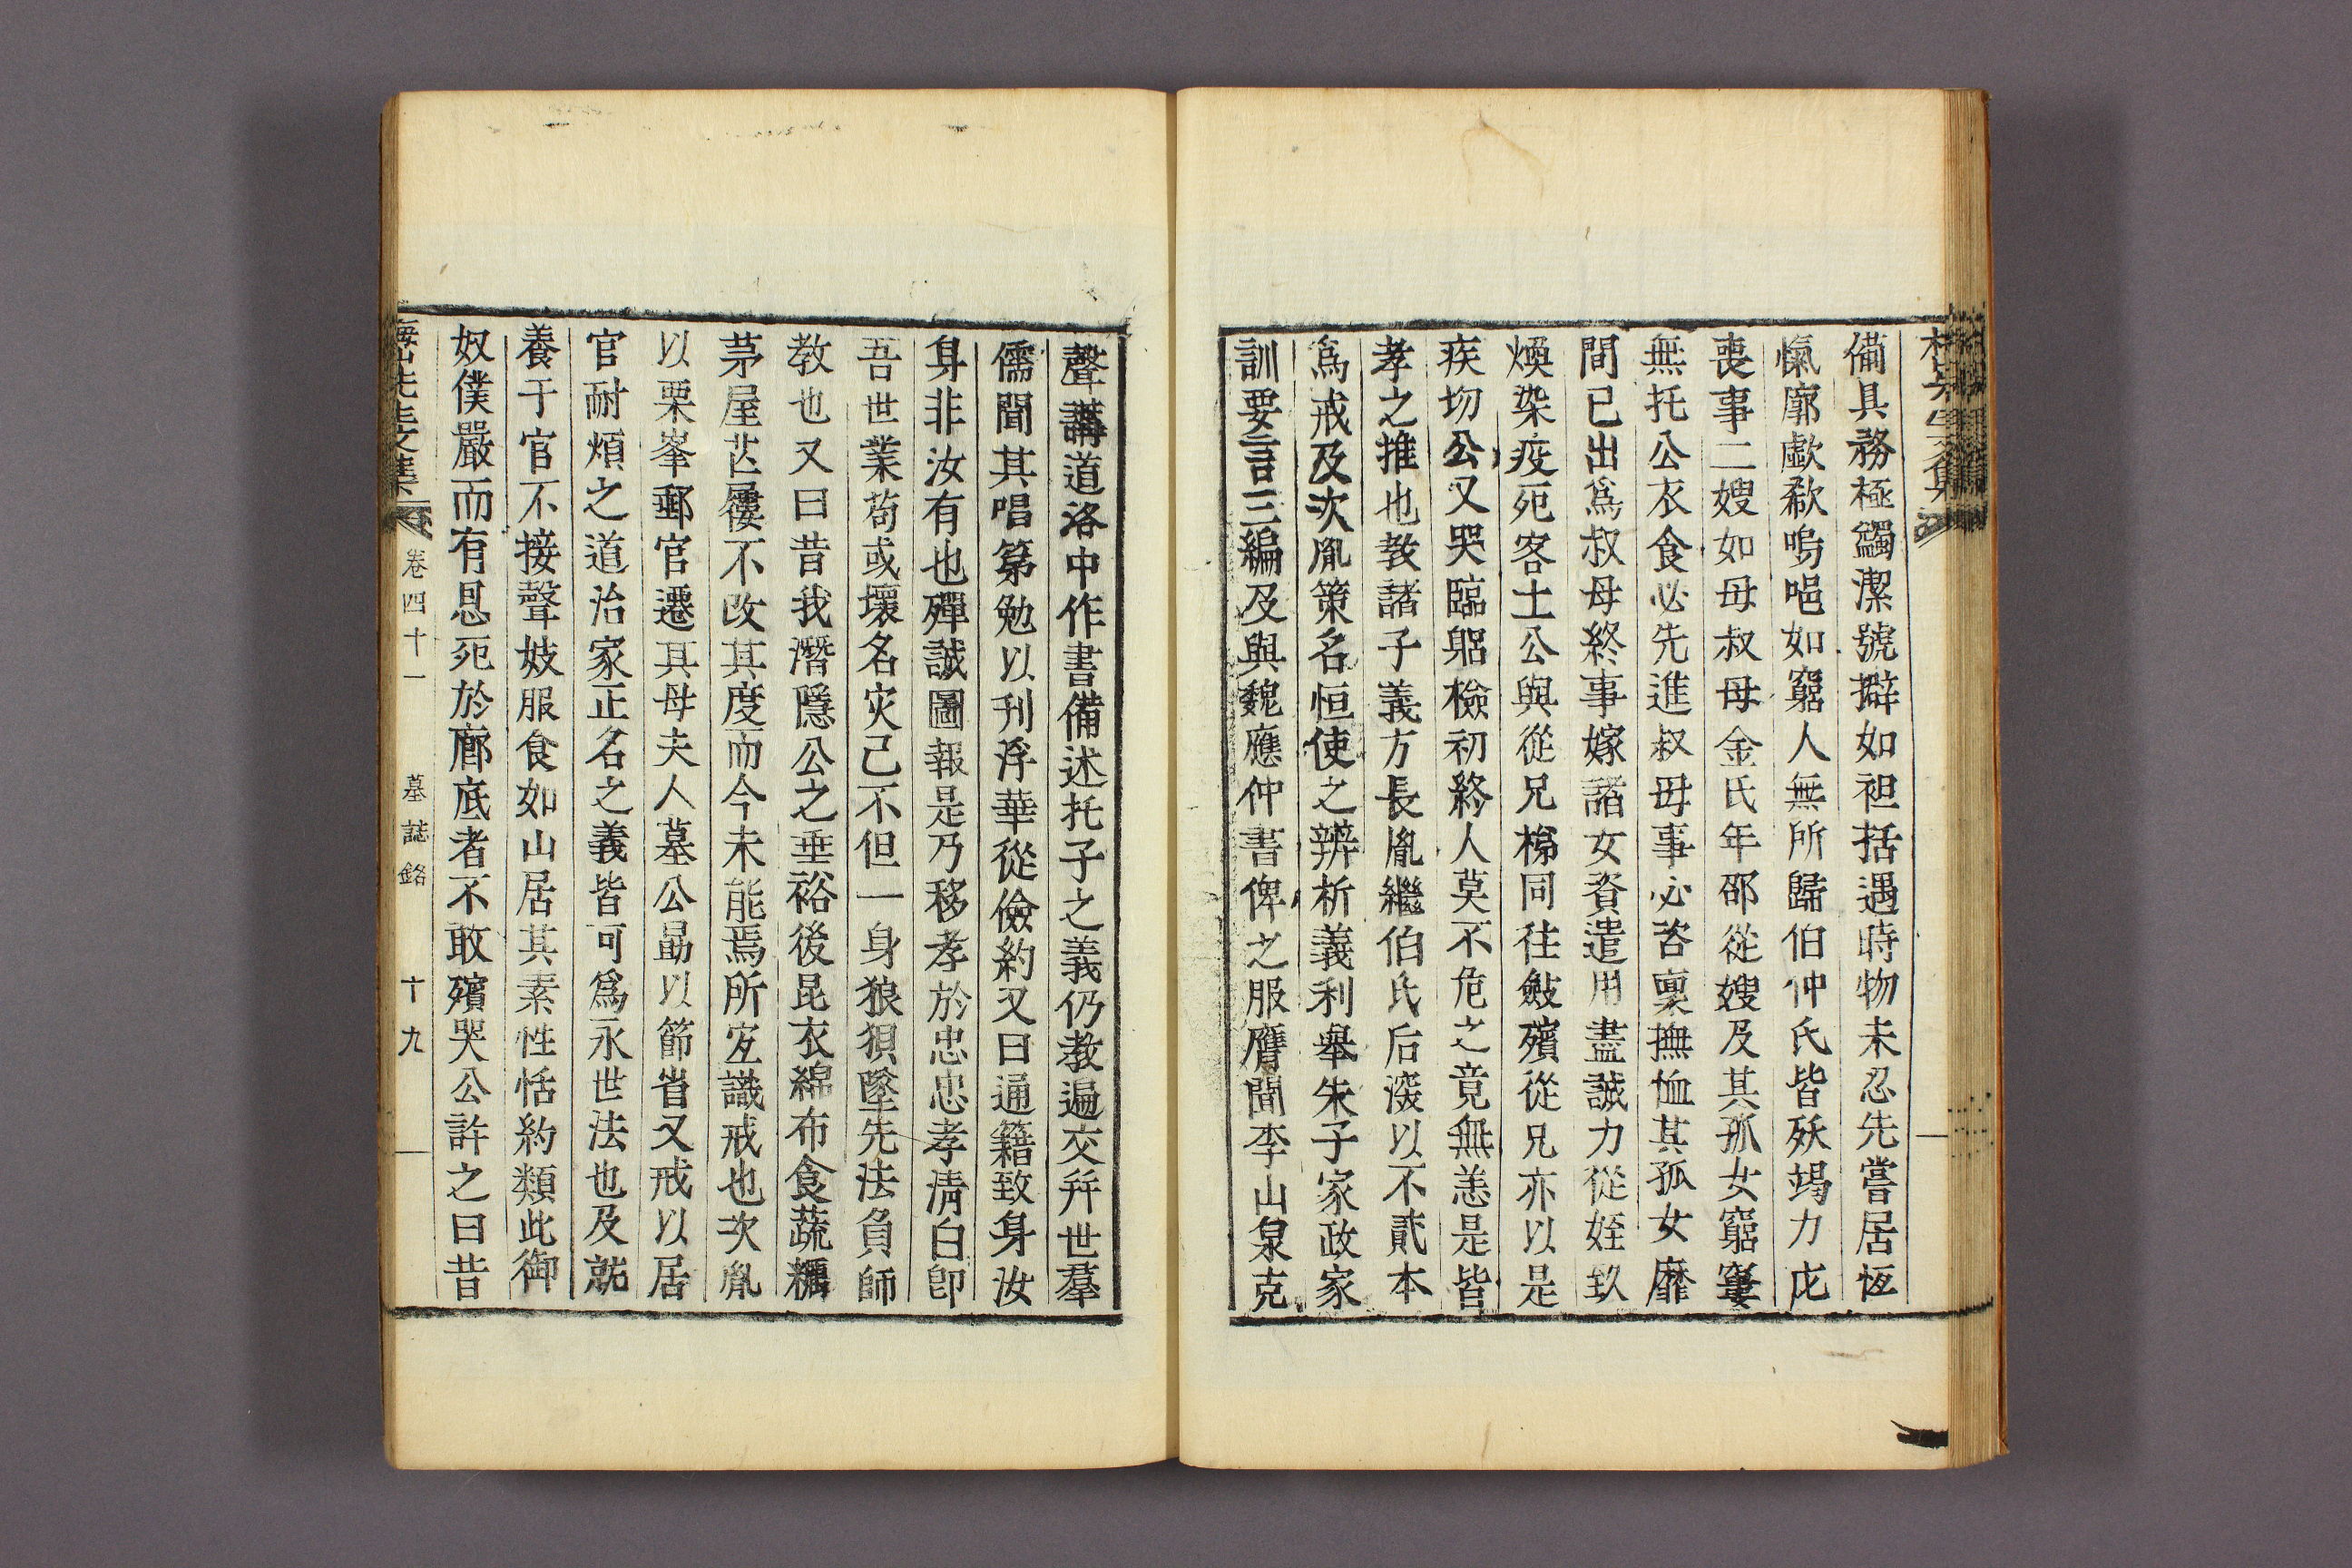 備具務極蠲潔號擗如袒括遇時物未忍先嘗居恆
愾廓歔欷嗚唈如窮人無所歸伯仲氏皆殀竭力庀
喪事二嫂如母叔母金氏年邵從嫂及其孤女窮窶
無托公衣食必先進叔母事必咨稟撫恤其孤女靡
間已出爲叔母終事嫁諸女資遣用盡誠力從姪致
煥染疫死客土公與從兄梯同往斂殯從兄亦以是
疾㓛公又哭臨躬檢初終人莫不危之竟無恙是皆
孝之推也教諸子義方長胤繼伯氏后淡以不貳本
爲戒及次胤策名恒使之辨析義利舉朱子家政家
訓要言三編及與魏應仲書俾之服膺聞李山泉克
聲講道洛中作書備述托子之義仍教遍交幷世羣
儒聞其唱第勉以刊浮華從儉約又曰通籍致身汝
身非汝有也殫誠圖報是乃移孝於忠忠孝淸白卽
吾世業苟或壞名灾己不但一身狼狽墜先法負師
教也又曰昔我潛隱公之垂裕後昆衣綿布食蔬糲
茅屋芒屨不改其度而今未能焉所宜識戒也次胤
以栗峯郵官遷其母夫人墓公勗以節省又戒以居
官耐煩之道治家正名之義皆可爲永世法也及就
養于官不接聲妓服食如山居其素性恬約類此御
奴僕嚴而有恩死於廊底者不敢殯哭公許之曰昔
先生文集 卷四十一 墓誌銘 十九